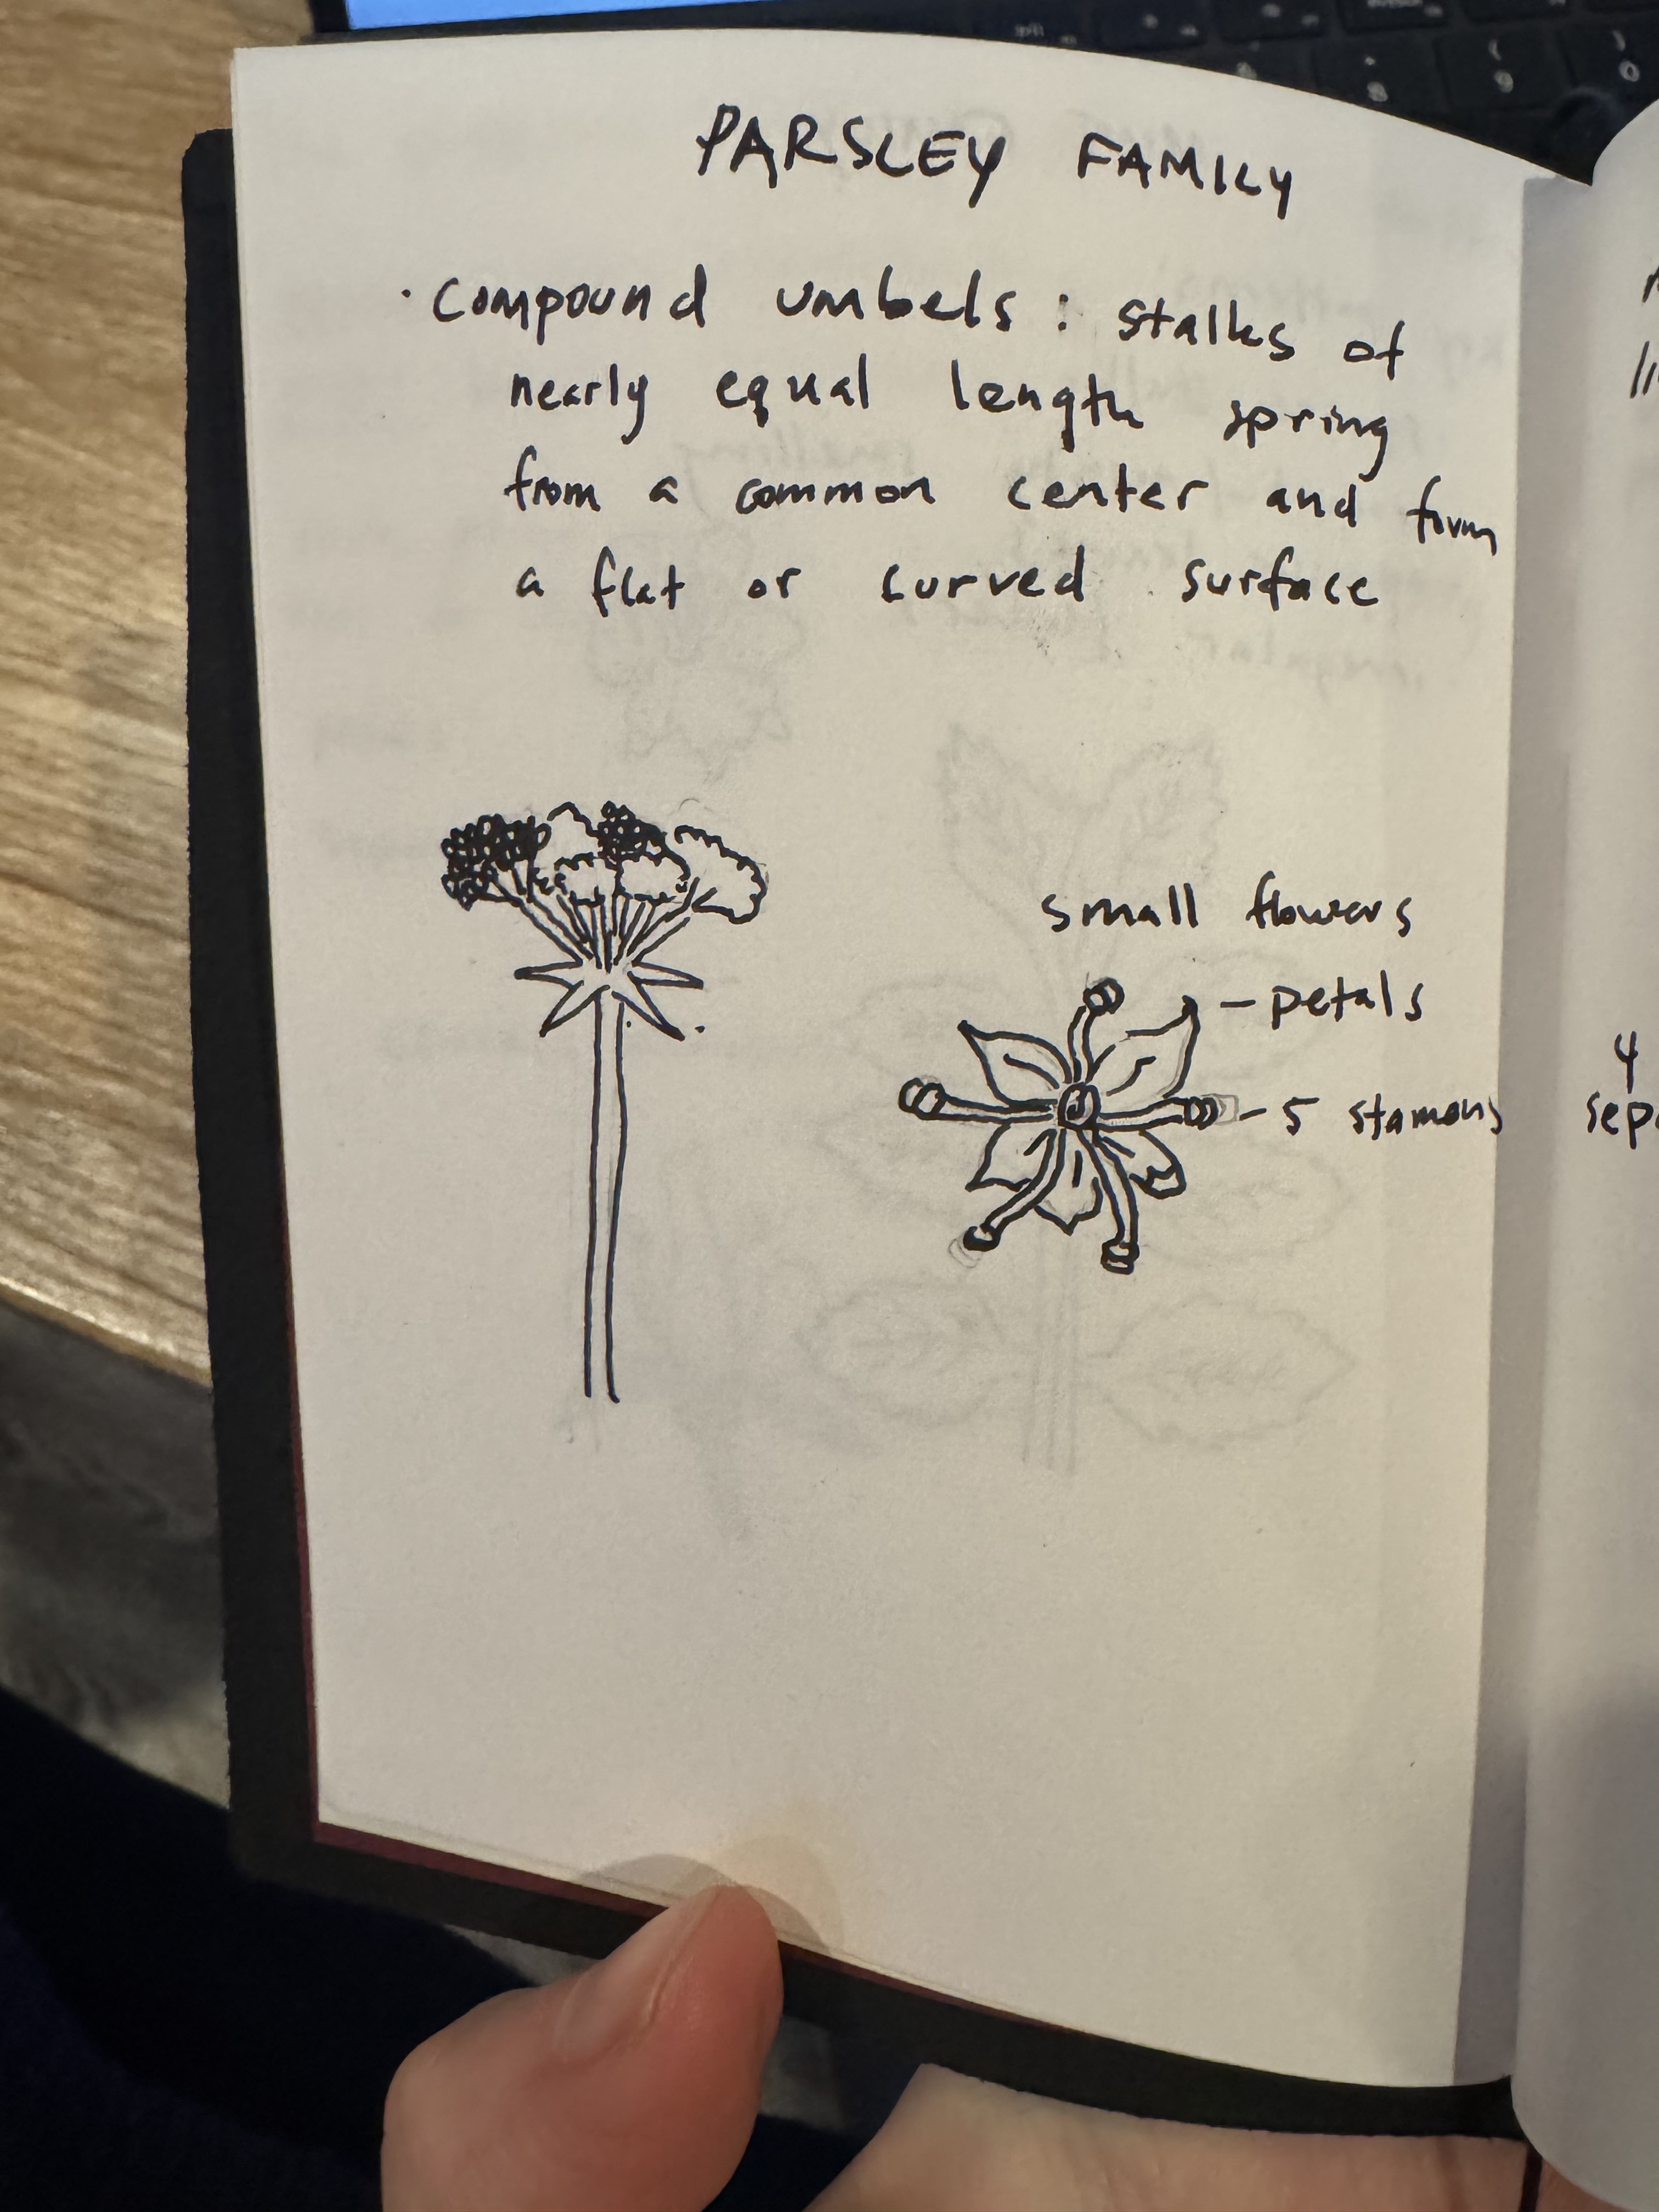 PARSLEY FAMILY
· compound umbels : stalks of
nearly equal length spring
from a common center and form
a flat or curved surface
small flowers
- petals
- 5 stamens
4